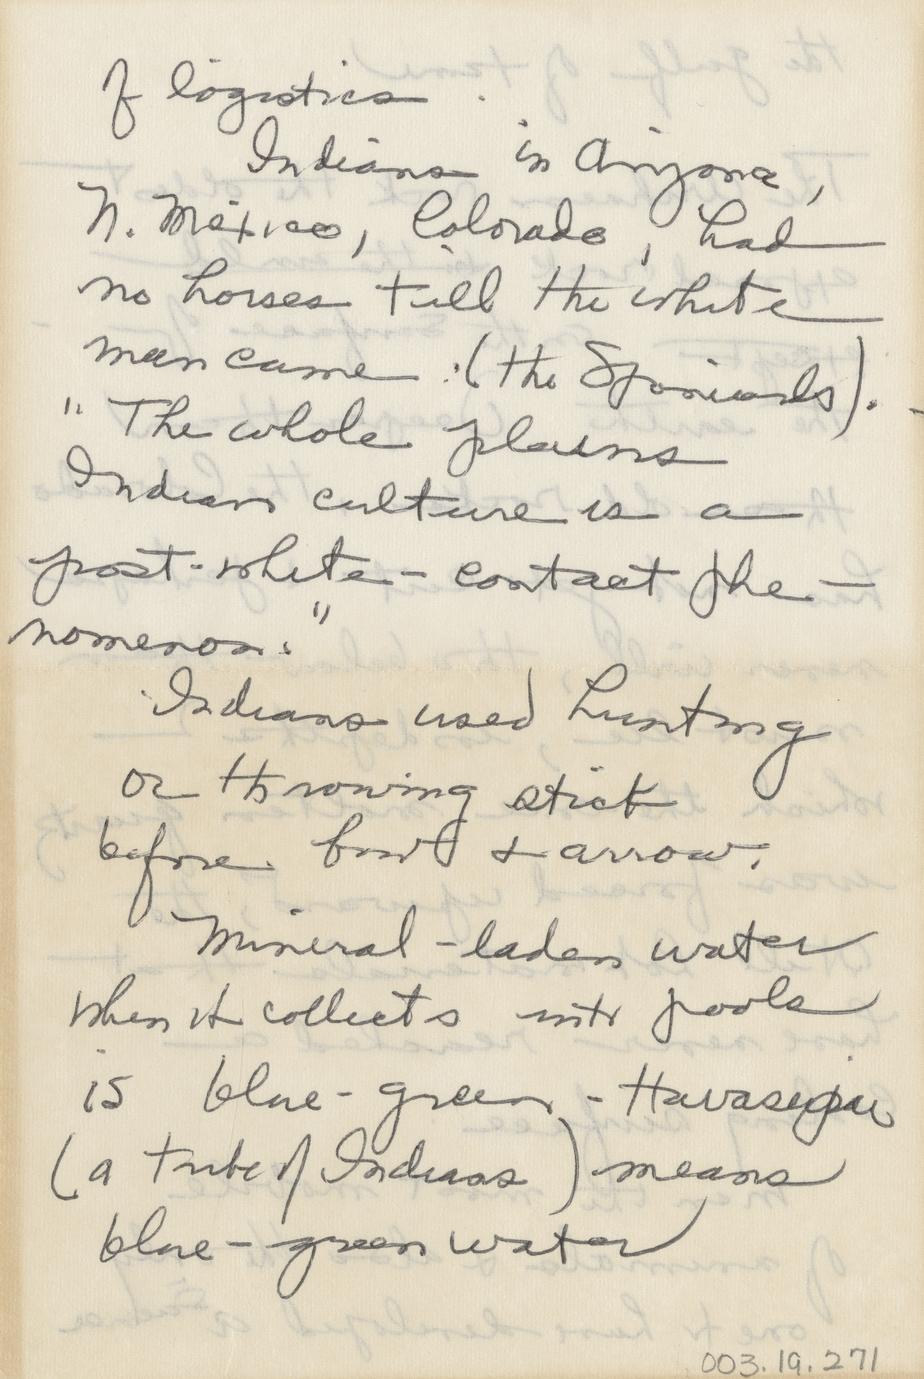 of logistics.
Indians in Arizona,
N. Mexico, Colorado, had
no horses till the white
man came. (the Spaniards).
"The whole plains
Indian culture is a
post-white-contact phe-
nomenon."
Indians used hunting
or throwing stick
before bow & arrow.
Mineral-laden water
when it collects into pools
is blue-green - Havasupai
(a tribe of Indians) means
blue-green water
003.19.271